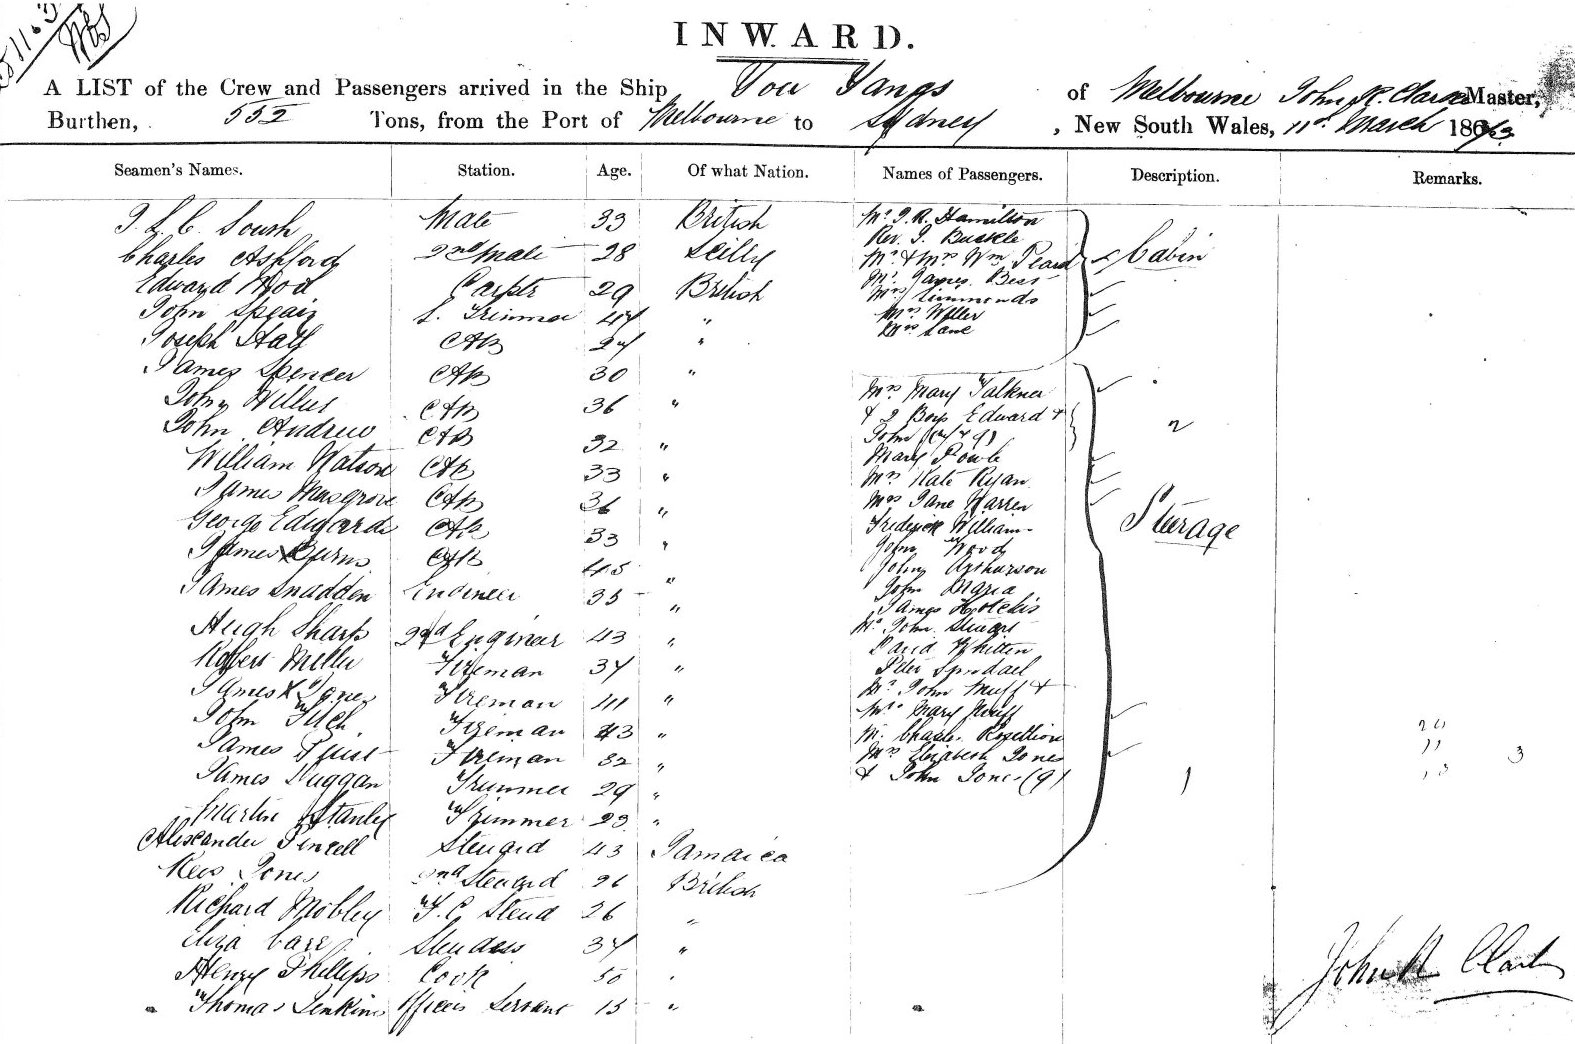 INWARD.
A LIST of the Crew and Passengers arrived in the Ship You Yangs of Melbourne John R. Clark Master,
Burthen, 552 Tons, from the Port of Melbourne to Sydney, New South Wales, 11th March 1863
Seamen's Names. Station. Age. Of what Nation. Names of Passengers. Description. Remarks.
Mate 33 British
Charles Ashford 2nd Mate 28 Scilly
Edward Carptr 29 British
John L. Trimmer 47 "
Joseph Hall AB 24 "
James Spencer AB 30 "
John Willis AB 36 "
John Andrew AB 32 "
William Watson AB 33 "
James Musgrove AB 36 "
George Edwards AB 33 "
James X Burns AB 45 "
James Snadden Engineer 35 "
Hugh Sharp 2nd Engineer 43 "
Robert Miller Fireman 34 "
James X Jones Fireman 41 "
John Fitch Fireman 43 "
James Fireman 32 "
James Duggan Trimmer 29 "
Martin Stanley Trimmer 23 "
Alexander Steward 43 Jamaica
Rees Jones 2nd Steward 26 British
Richard Mobley F. C. Steud 26 "
Eliza Carr Stewdess 34 "
Henry Phillips Cook 50 "
Thomas Jenkins Officers Servant 15 "
Mr J. R. Hamilton
Rev. J. Buckle
Mr & Mrs Wm Peard Cabin
Mr James Best
Mrs Simmonds
Mrs Willer
Mrs Lane
Mrs Mary Falkner
& 2 Boys Edward & 2
John (7 & 9)
Mary Powle
Mrs Kate Ryan
Mrs Jane Warren
Frederick William Steerage
John Wood
John Arthurson
John Maria
James Hotchkis
Mr John Stuart
David Whitten
Peter
Mr John Muff &
Mrs Mary Muff
Mr Charles
Mrs Elizabeth Jones
& John Jones (9) 1
3
John R Clark